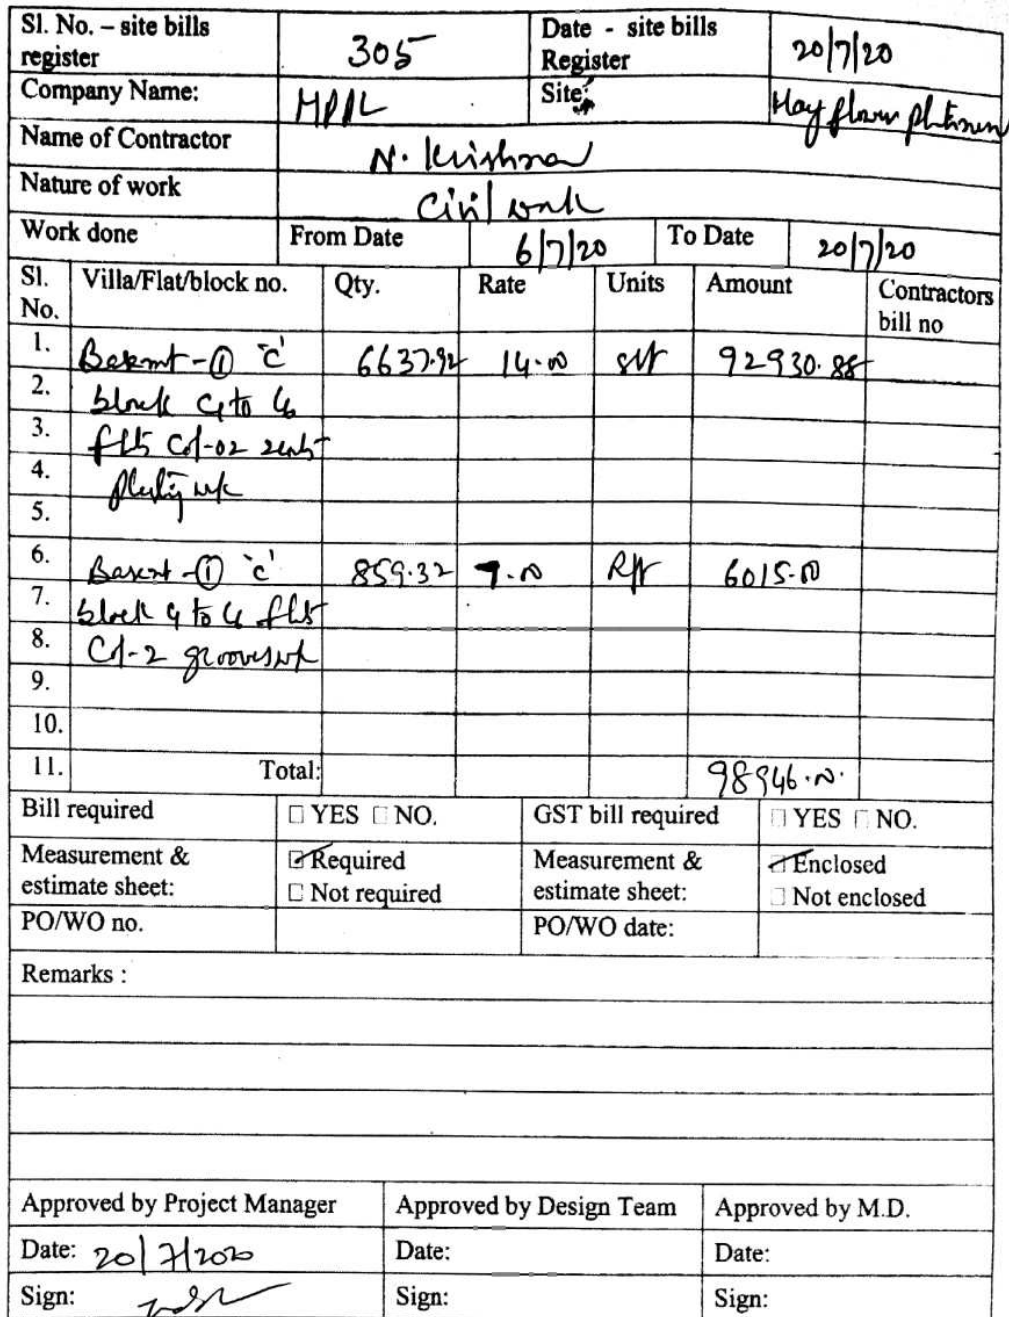 Sl. No. – site bills register 305 Date - site bills Register 20/7/20
Company Name: MPPL Site: May flower platinum
Name of Contractor N. Krishna
Nature of work Civil work
Work done From Date 6/7/20 To Date 20/7/20
Sl. No. Villa/Flat/block no. Qty. Rate Units Amount Contractors bill no
1. 'C' 6637.92 14.00 sft 92930.88
2. block to
3. flts
4.
5.
6. 'C' 859.32 7.00 Rft 6015.00
7. block to flts
8. grooves wk
9.
10.
11. Total: 98946.00
Bill required □ YES □ NO. GST bill required □ YES □ NO.
Measurement & estimate sheet: ☑ Required Measurement & estimate sheet: ☑ Enclosed
□ Not required □ Not enclosed
PO/WO no. PO/WO date:
Remarks :
Approved by Project Manager Approved by Design Team Approved by M.D.
Date: 20/7/2020 Date: Date:
Sign: Sign: Sign: